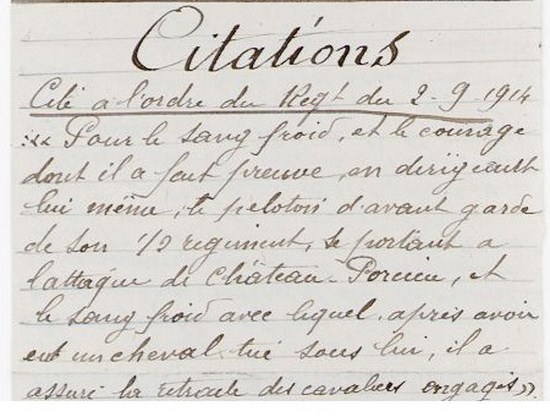 Citations
Cité a l'ordre du Regt du 2-9-1914
:«« Pour le sang froid, et le courage
dont il a fait preuve, en dirigeant
lui même, le peloton d'avant garde
de son 1/2 regiment, se portant a
l'attaque de Château-Porcien, et
le sang froid avec lequel, après avoir
eut un cheval tué sous lui, il a
assuré la retraite des cavaliers engagés».